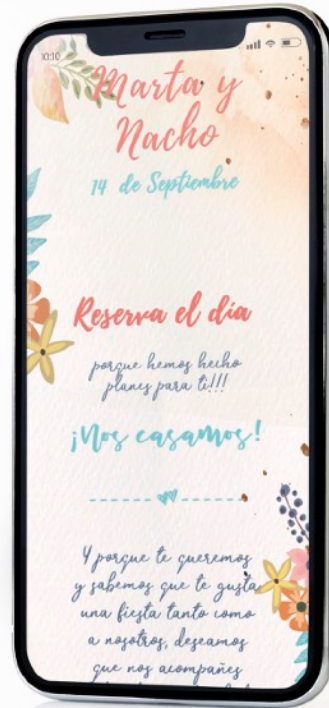 10:10
Marta y
Nacho
14 de Septiembre
Reserva el día
porque hemos hecho
planes para ti!!!
¡Nos casamos!
Y porque te queremos
y sabemos que te gusta
una fiesta tanto como
a nosotros, deseamos
que nos acompañes